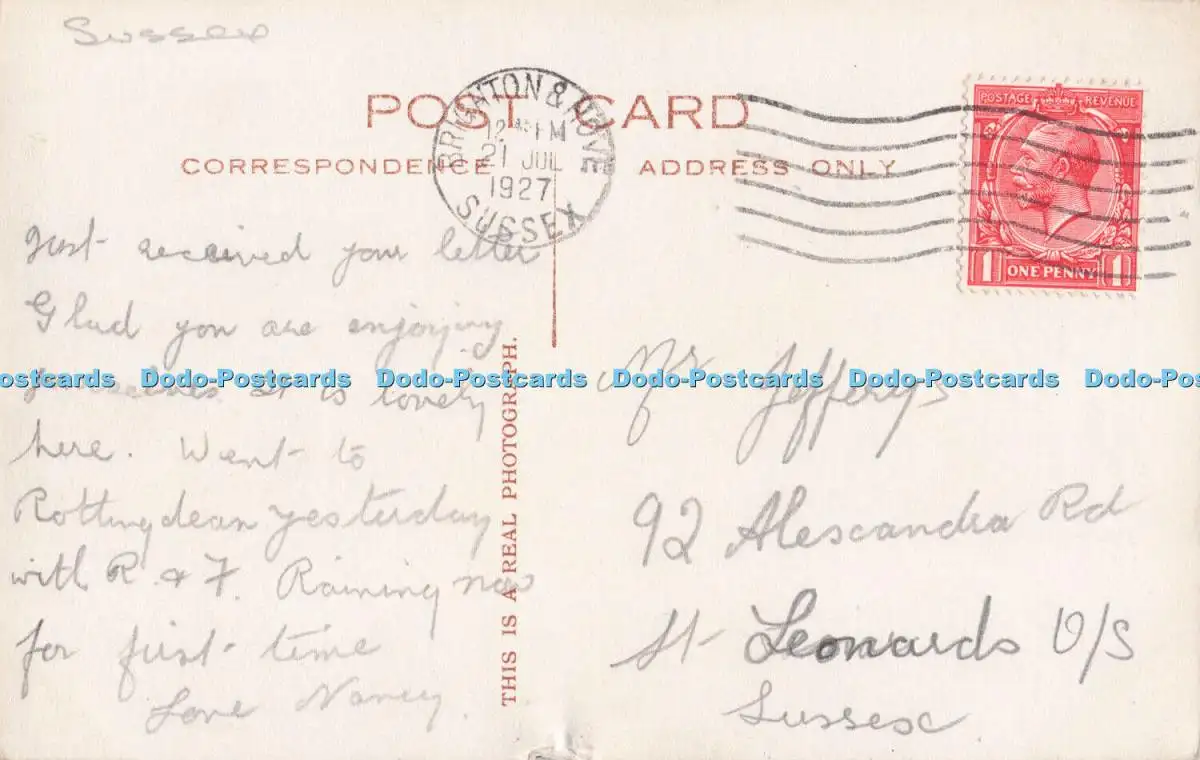 Sussex
POST CARD
CORRESPONDENCE
ADDRESS ONLY
BRIGHTON & HOVE
12 45 PM
21 JUL
1927
SUSSEX
POSTAGE REVENUE
1 ONE PENNY 1
Just received your letter
Glad you are enjoying
it is lovely
here. Went to
Rottingdean yesterday
with R. & F. Raining now
for first time
Love Nancy.
THIS IS A REAL PHOTOGRAPH.
Mr Jefferys
92 Alexandra Rd
St Leonards O/S
Sussex
Dodo-Postcards Dodo-Postcards Dodo-Postcards Dodo-Postcards Dodo-Postcards